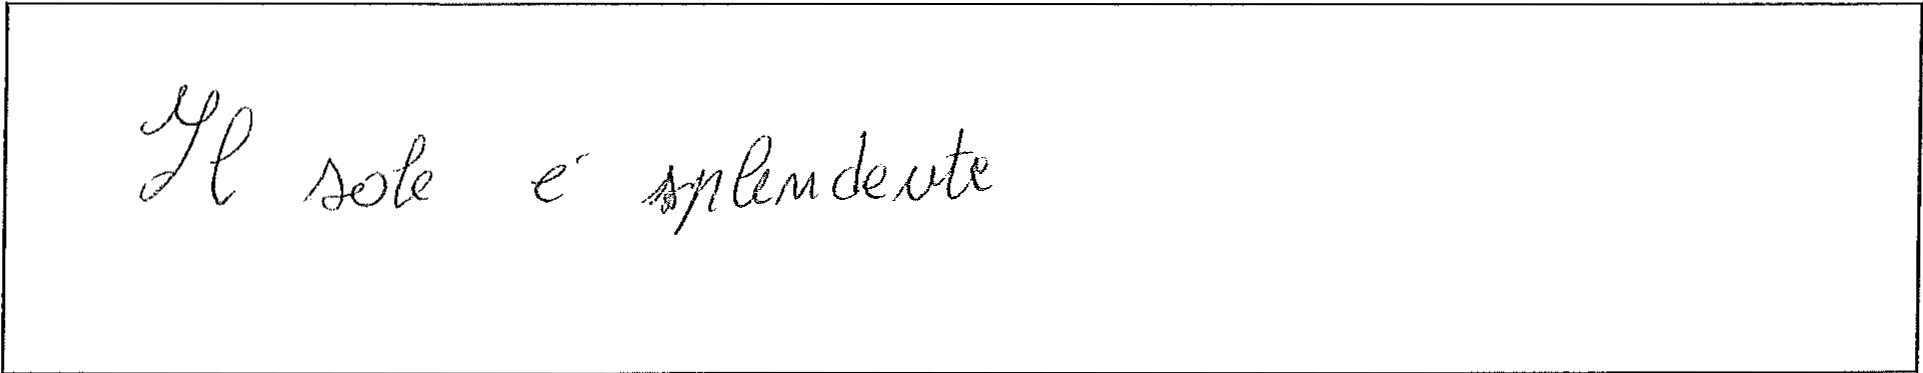 Il sole è splendente